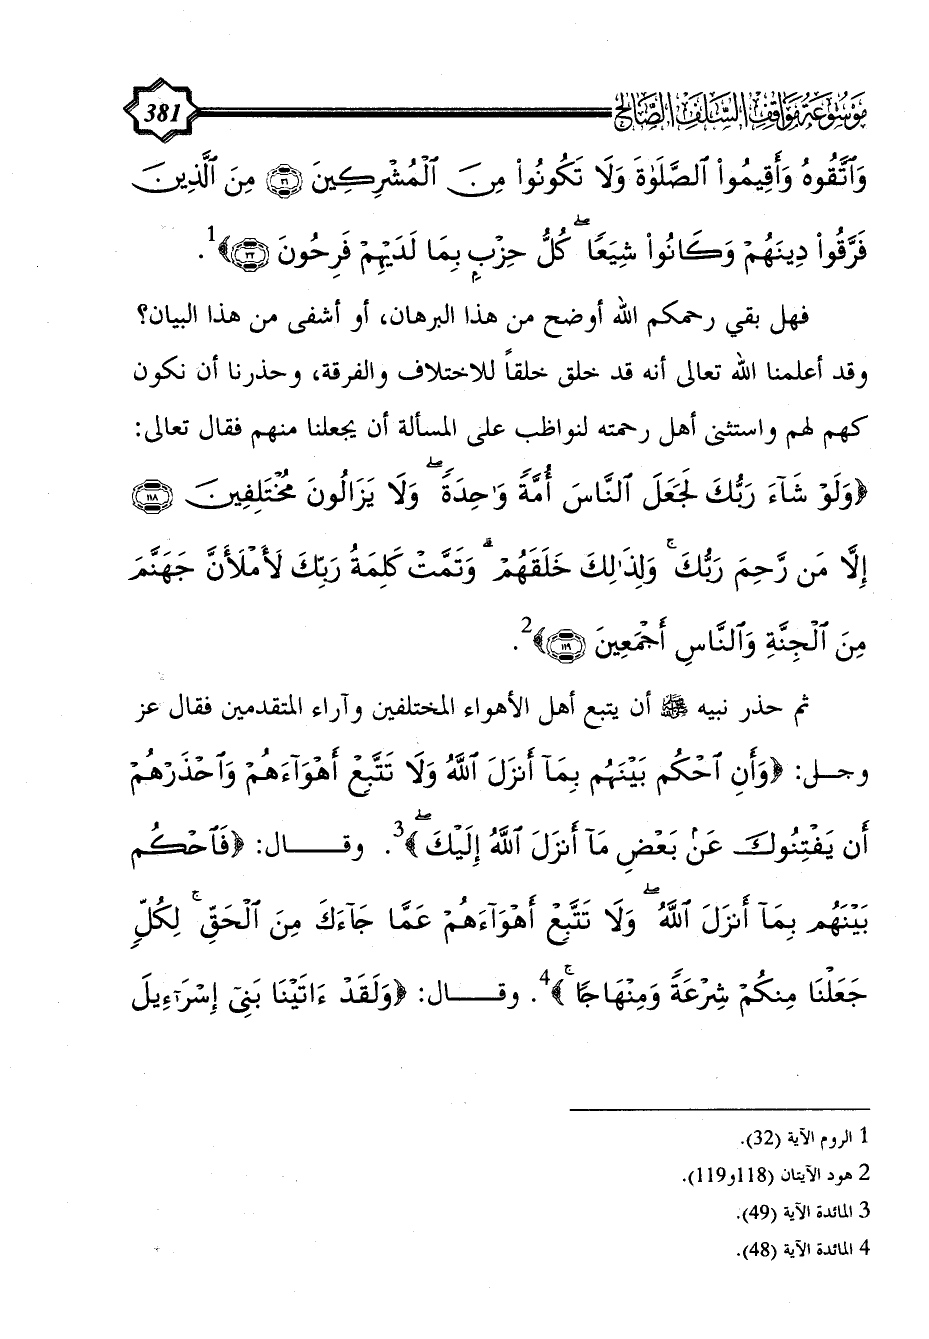 موسوعة مواقف السلف الصالح 381
وَٱتَّقُوهُ وَأَقِيمُوا۟ ٱلصَّلَوٰةَ وَلَا تَكُونُوا۟ مِنَ ٱلْمُشْرِكِينَ ٣١ مِنَ ٱلَّذِينَ
فَرَّقُوا۟ دِينَهُمْ وَكَانُوا۟ شِيَعًا ۖ كُلُّ حِزْبٍۭ بِمَا لَدَيْهِمْ فَرِحُونَ ٣٢﴾1.
فهل بقي رحمكم الله أوضح من هذا البرهان، أو أشفى من هذا البيان؟
وقد أعلمنا الله تعالى أنه قد خلق خلقاً للاختلاف والفرقة، وحذرنا أن نكون
كهم لهم واستثنى أهل رحمته لنواظب على المسألة أن يجعلنا منهم فقال تعالى:
﴿وَلَوْ شَآءَ رَبُّكَ لَجَعَلَ ٱلنَّاسَ أُمَّةً وَٰحِدَةً ۖ وَلَا يَزَالُونَ مُخْتَلِفِينَ ١١٨
إِلَّا مَن رَّحِمَ رَبُّكَ ۚ وَلِذَٰلِكَ خَلَقَهُمْ ۗ وَتَمَّتْ كَلِمَةُ رَبِّكَ لَأَمْلَأَنَّ جَهَنَّمَ
مِنَ ٱلْجِنَّةِ وَٱلنَّاسِ أَجْمَعِينَ ١١٩﴾2.
ثم حذر نبيه ﷺ أن يتبع أهل الأهواء المختلفين وآراء المتقدمين فقال عز
وجل: ﴿وَأَنِ ٱحْكُم بَيْنَهُم بِمَآ أَنزَلَ ٱللَّهُ وَلَا تَتَّبِعْ أَهْوَآءَهُمْ وَٱحْذَرْهُمْ
أَن يَفْتِنُوكَ عَنۢ بَعْضِ مَآ أَنزَلَ ٱللَّهُ إِلَيْكَ ۖ﴾3. وقال: ﴿فَٱحْكُم
بَيْنَهُم بِمَآ أَنزَلَ ٱللَّهُ ۖ وَلَا تَتَّبِعْ أَهْوَآءَهُمْ عَمَّا جَآءَكَ مِنَ ٱلْحَقِّ ۚ لِكُلٍّ
جَعَلْنَا مِنكُمْ شِرْعَةً وَمِنْهَاجًا ۚ﴾4. وقال: ﴿وَلَقَدْ ءَاتَيْنَا بَنِىٓ إِسْرَٰٓءِيلَ
1 الروم الآية (32).
2 هود الآيتان (118و119).
3 المائدة الآية (49).
4 المائدة الآية (48).